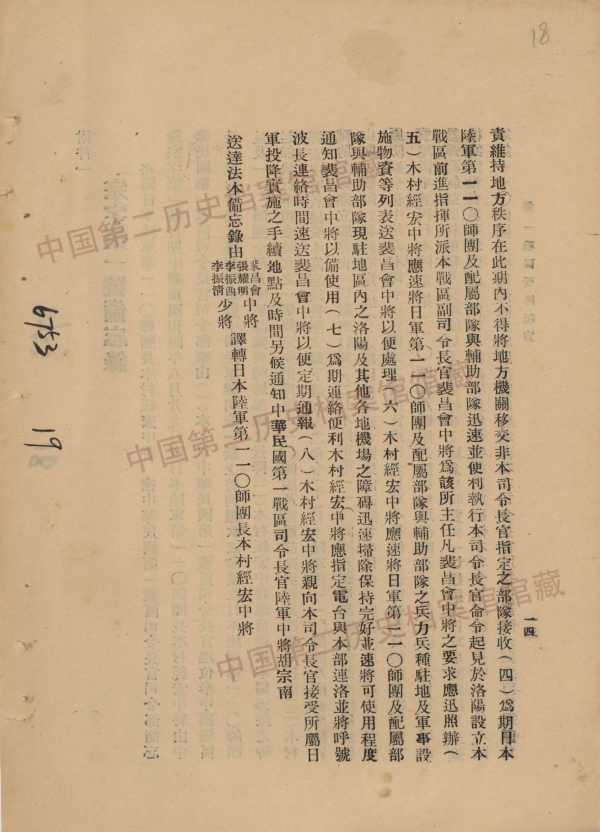 18
責維持地方秩序在此期內不得將地方機關移交非本司令長官指定之部隊接收(四)爲期日本
陸軍第一一〇師團及配屬部隊與輔助部隊迅速並便利執行本司令長官命令起見於洛陽設立本
戰區前進指揮所派本戰區副司令長官裴昌會中將爲該所主任凡裴昌會中將之要求應迅照辦(
五)木村經宏中將應速將日軍第一一〇師團及配屬部隊與輔助部隊之兵力兵種駐地及軍事設
施物資等列表送裴昌會中將以便處理(六)木村經宏中將應速將日軍第一一〇師團及配屬部
隊與輔助部隊現駐地區內之洛陽及其他各地機場之障碍迅速掃除保持完好並速將可使用程度
通知裴昌會中將以備使用(七)爲期連絡便利木村經宏中將應指定電台與本部連洛並將呼號
波長連絡時間速送裴昌會中將以便定期通報(八)木村經宏中將親向本司令長官接受所屬日
軍投降實施之手續地點及時間另候通知中華民國第一戰區司令長官陸軍中將胡宗南
送達法本備忘錄由
裴昌會
張耀明中將
李振西
李振清少將
譯轉日本陸軍第一一〇師團長木村經宏中將
一四
6753
19
中国第二历史档案馆馆藏
中国第二历史档案馆馆藏
中国第二历史档案馆馆藏